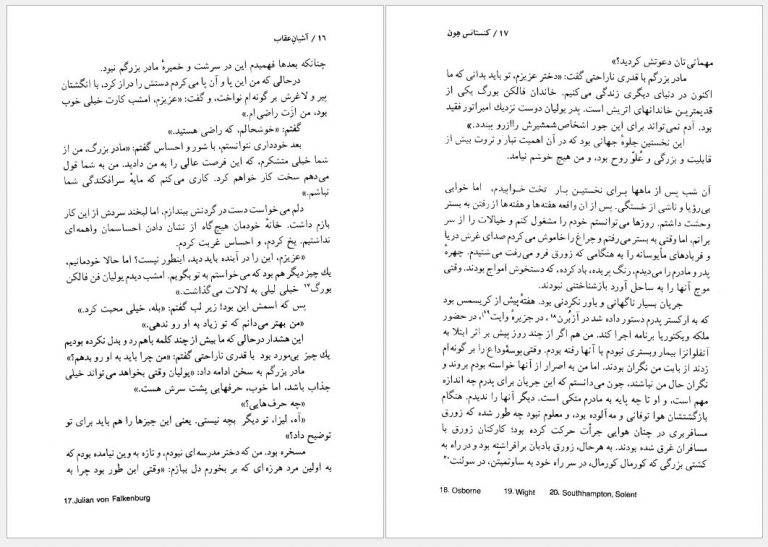 ۱۶ / آشیانِ عقاب
چنانکه بعدها فهمیدم این در سرشت و خمیرهٔ مادر بزرگم نبود.
درحالی که من این پا و آن پا می‌کردم دستش را دراز کرد، با انگشتان
پیر و لاغرش بر گونه‌ام نواخت، و گفت: «عزیزم، امشب کارت خیلی خوب
بود، من ازت راضی‌ام.»
گفتم: «خوشحالم، که راضی هستید.»
بعد خودداری نتوانستم، با شور و احساس گفتم: «مادر بزرگ، من از
شما خیلی متشکرم، که این فرصت عالی را به من دادید. من به شما قول
می‌دهم سخت کار خواهم کرد. کاری می‌کنم که مایهٔ سرافکندگی شما
نباشم.»
دلم می‌خواست دست در گردنش بیندازم، اما لبخند سردش از این کار
بازم داشت. خانهٔ خودمان هیچ‌گاه از نشان دادن احساسمان واهمه‌ای
نداشتیم. یخ کردم، و احساس غربت کردم.
«عزیزم، این را در آینده باید دید، اینطور نیست؟ اما حالا خودمانیم،
یك چیز دیگر هم بود که می‌خواستم به تو بگویم. امشب دیدم یولیان فن فالکن
بورگ۱۷ خیلی لیلی به لالات می‌گذاشت.»
پس که اسمش این بود؛ زیر لب گفتم: «بله، خیلی محبت کرد.»
«من بهتر می‌دانم که تو زیاد به او رو ندهی.»
این هشدار درحالی که ما بیش از چند کلمه باهم رد و بدل نکرده بودیم
یك چیز بی‌مورد بود با قدری ناراحتی گفتم: «من چرا باید به او رو بدهم؟»
مادر بزرگم به سخن ادامه داد: «یولیان وقتی بخواهد می‌تواند خیلی
جذاب باشد، اما خوب، حرفهایی پشت سرش هست.»
«چه حرف‌هایی؟»
«آه، لیزا، تو دیگر بچه نیستی. یعنی این چیزها را هم باید برای تو
توضیح داد؟»
مسخره بود. من که دختر مدرسه‌ای نبودم، و تازه به وین نیامده بودم که
به اولین مرد هرزه‌ای که بر بخورم دل ببازم: «وقتی این طور بود چرا به
17.Julian von Falkenburg
۱۷ / کنستانس هون
مهمانی‌تان دعوتش کردید؟»
مادر بزرگم با قدری ناراحتی گفت: «دختر عزیزم، تو باید بدانی که ما
اکنون در دنیای دیگری زندگی می‌کنیم. خاندان فالکن بورگ یکی از
قدیمترین خاندانهای اتریش است. پدر یولیان دوست نزدیك امپراتور فقید
بود. آدم نمی‌تواند برای این جور اشخاص شمشیرش را از رو ببندد.»
این نخستین جلوهٔ جهانی بود که در آن اهمیت تبار و ثروت بیش از
قابلیت و بزرگی و عُلوّ روح بود، و من هیچ خوشم نیامد.
آن شب پس از ماهها برای نخستین بار تخت خوابیدم، اما خوابی
بی‌رؤیا و ناشی از خستگی. پس از آن واقعه هفته‌ها و هفته‌ها از رفتن به بستر
وحشت داشتم. روزها می‌توانستم خودم را مشغول کنم و خیالات را از سر
برانم، اما وقتی به بستر می‌رفتم و چراغ را خاموش می‌کردم صدای غرش دریا
و فریادهای مأیوسانه را به هنگامی که زورق فرو می‌رفت می‌شنیدم. چهرهٔ
پدر و مادرم را می‌دیدم، رنگ بریده، باد کرده، که دستخوش امواج بودند. وقتی
موج آنها را به ساحل آورد بازشناختنی نبودند.
جریان بسیار ناگهانی و باور نکردنی بود. هفتهٔ پیش از کریسمس بود
که به ارکستر پدرم دستور داده شد در آزبُرن۱۸، در جزیرهٔ وایت۱۹، در حضور
ملکه ویکتوریا برنامه اجرا کند. من هم اگر از چند روز پیش بر اثر ابتلا به
آنفلوانزا بیمار و بستری نبودم با آنها رفته بودم. وقتی بوسهٔ وداع را بر گونه‌ام
زدند از بابت من نگران بودند. اما من به اصرار از آنها خواسته بودم بروند و
نگران حال من نباشند، چون می‌دانستم که این جریان برای پدرم چه اندازه
مهم است، و او تا چه پایه به مادرم متکی است. دیگر آنها را ندیدم. هنگام
بازگشتشان هوا توفانی و مه‌آلوده بود، و معلوم نبود چه طور شده که زورق
مسافربری در چنان هوایی جرأت حرکت کرده بود؛ کارکنان زورق با
مسافران غرق شده بودند. به‌هرحال، زورق بادبان برافراشته بود و در راه به
کشتی بزرگی که کورمال کورمال، در سر راه خود به ساوتمپتن، در سولنت۲۰
18. Osborne 19. Wight 20. Southhampton, Solent